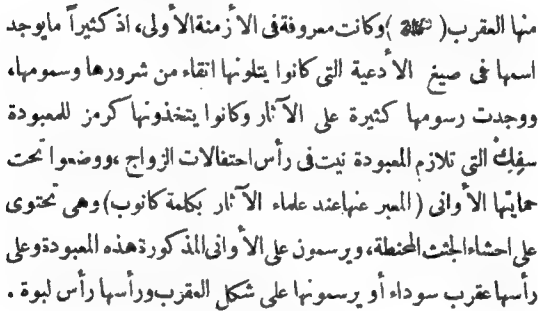 منها العقرب ( ) وكانت معروفة فى الأزمنة الأولى، اذ كثيراً مايوجد
اسمها فى صيغ الأدعية التى كانوا يتلونها اتقاء من شرورها وسمومها،
ووجدت رسومها كثيرة على الآثار وكانوا يتخذونها كرمز للمعبودة
سفِكْ التى تلازم المعبودة نيت فى رأس احتفالات الزواج ، ووضعوا تحت
حمايتها الأوانى ( المعبر عنها عند علماء الآثار بكلمة كانوب) وهى تحتوى
على احشاء الجثث المحنطة، ويرسمون على الأوانى المذكورة هذه المعبودة وعلى
رأسها عقرب سوداء أو يرسمونها على شكل العقرب ورأسها رأس لبوة .